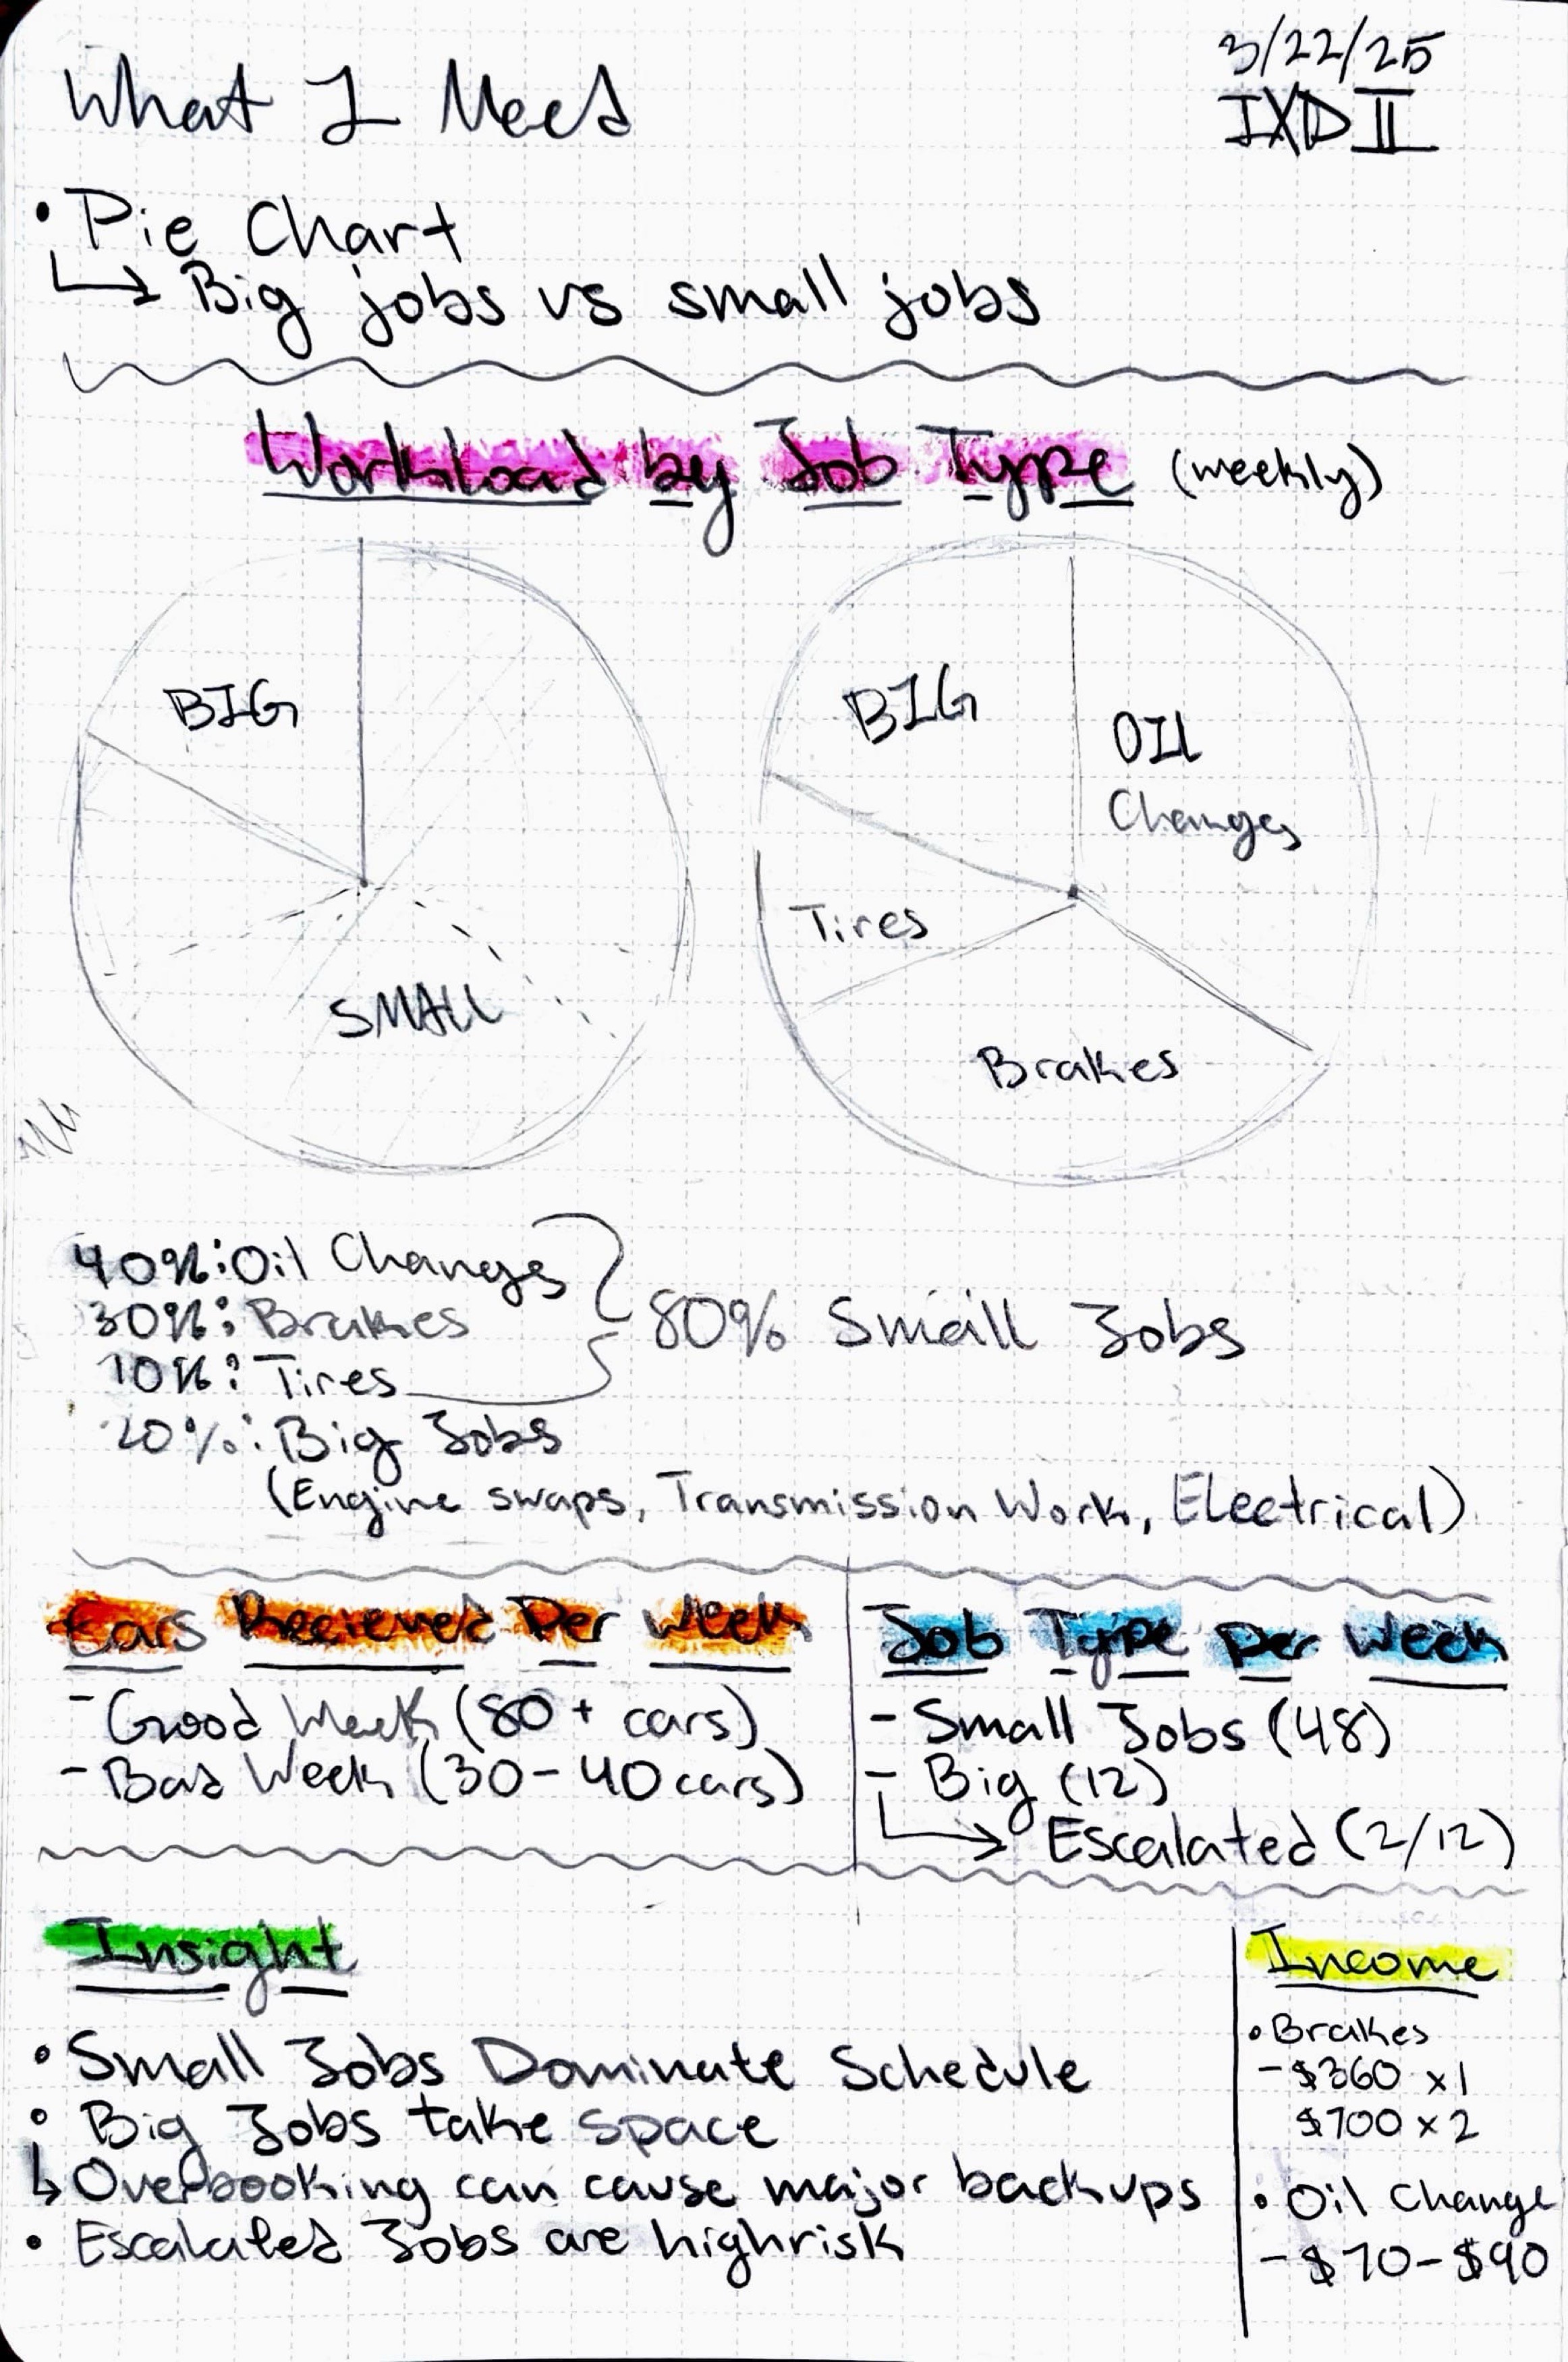 3/22/25
What I Need
IXD II
• Pie Chart
↳ Big jobs vs small jobs
Workload by Job Type (weekly)
BIG
SMALL
BIG
OIL
Changes
Tires
Brakes
40%: Oil Changes
30%: Brakes
10%: Tires
80% Small Jobs
20%: Big Jobs
(Engine swaps, Transmission Work, Electrical)
Cars Recieved Per Week
- Good Week (80+ cars)
- Bad Week (30-40 cars)
Job Type Per Week
- Small Jobs (48)
- Big (12)
↳ Escalated (2/12)
Insight
• Small Jobs Dominate Schedule
• Big Jobs take space
↳ Overbooking can cause major backups
• Escalated Jobs are highrisk
Income
• Brakes
- $360 x1
$700 x2
• Oil Change
- $70-$90